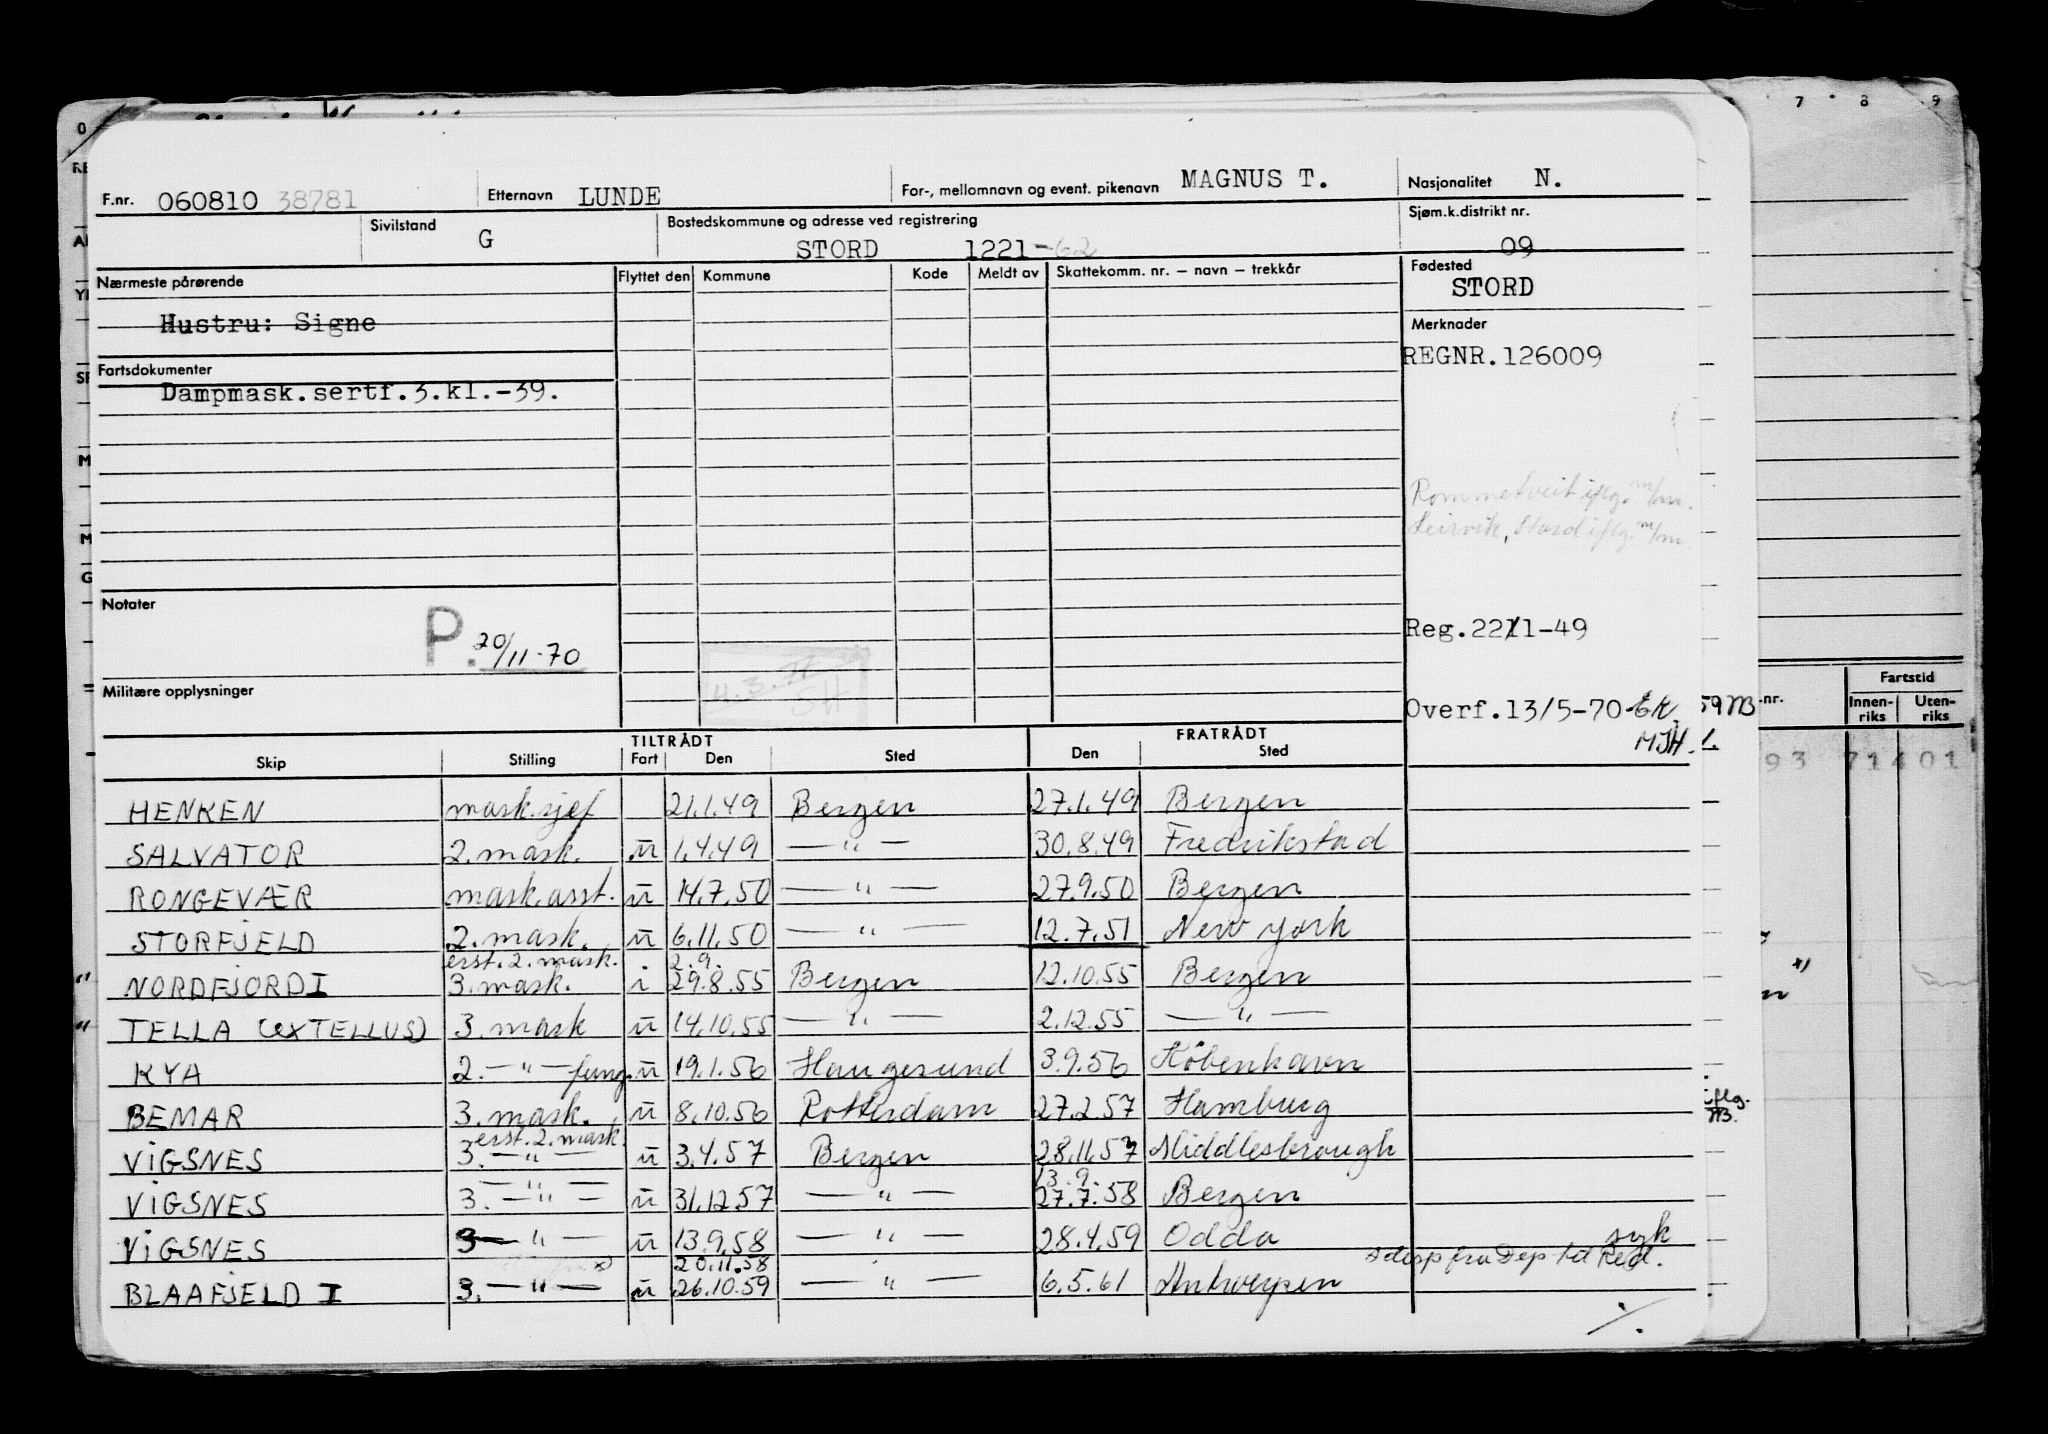 7 8 9
F.nr. 060810 38781 Etternavn LUNDE For-, mellomnavn og event. pikenavn MAGNUS T. Nasjonalitet N.
Sivilstand G Bostedskommune og adresse ved registrering STORD 1221-62 Sjøm.k.distrikt nr. 09
Nærmeste pårørende Flyttet den Kommune Kode Meldt av Skattekomm. nr. – navn – trekkår Fødested STORD
Hustru: Signe
Merknader
REGNR.126009
Fartsdokumenter
Dampmask.sertf.3.kl.-39.
Rommetveit iflg. m/m.
Leirvik, Stord iflg. m/m.
Notater
P. 20/11-70
Reg.22/1-49
Militære opplysninger
Overf.13/5-70 EK
MJH.
59 nr. Fartstid
Innen-riks Uten-riks
93 71401
TILTRÅDT FRATRÅDT
Skip Stilling Fart Den Sted Den Sted
HENKEN mask.sjef 21.1.49 Bergen 27.1.49 Bergen
SALVATOR 2.mask. u 1.4.49 — " — 30.8.49 Fredrikstad
RONGEVÆR mask.asst. u 14.7.50 — " — 27.9.50 Bergen
STORFJELD 2.mask. u 6.11.50 — " — 12.7.51 New York
erst.2.mask. 2.9.
" NORDFJORD I 3.mask. i 29.8.55 Bergen 12.10.55 Bergen
" TELLA (ex TELLUS) 3.mask u 14.10.55 — " — 2.12.55 — " —
KYA 2. — " — fung. u 19.1.56 Haugesund 3.9.56 København
BEMAR 3.mask. u 8.10.56 Rotterdam 27.2.57 Hamburg
erst.2.mask.
VIGSNES 3. — " — u 3.4.57 Bergen 28.11.57 Middlesbrough
— " — 13.9.
VIGSNES 3. — " — u 31.12.57 — " — 27.7.58 Bergen
VIGSNES 3 — " — u 13.9.58 — " — 28.4.59 Odda syk
20.11.58
BLAAFJELD I 3. — " — u 26.10.59 — " — 6.5.61 Antwerpen